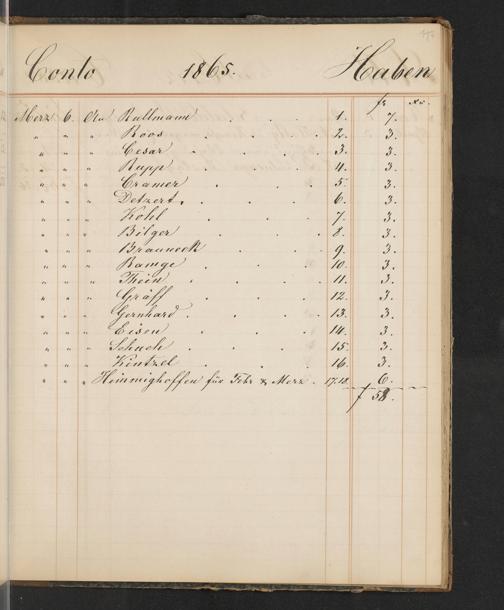 Conto 1865. Haben
fr. xr.
Merz 6. An Rullmann . . 1. 7.
" " " Roos . . . 2. 3.
" " " Cesar . . . 3. 3.
" " " Rupp . . . 4. 3.
" " " Cramer . . . 5. 3.
" " " Detzert . . . 6. 3.
" " " Kohl . . . 7. 3.
" " " Bilger . . . 8. 3.
" " " Brauneck . . . 9. 3.
" " " Ramge . . . 10. 3.
" " " Thein . . . 11. 3.
" " " Gräff . . . 12. 3.
" " " Gernhard . . . 13. 3.
" " " Eisen . . . 14. 3.
" " " Schuch . . . 15. 3.
" " " Kintzel . . . 16. 3.
" " " Heimmighoffen für Febr & Merz . 17.18. 6.
f 58.